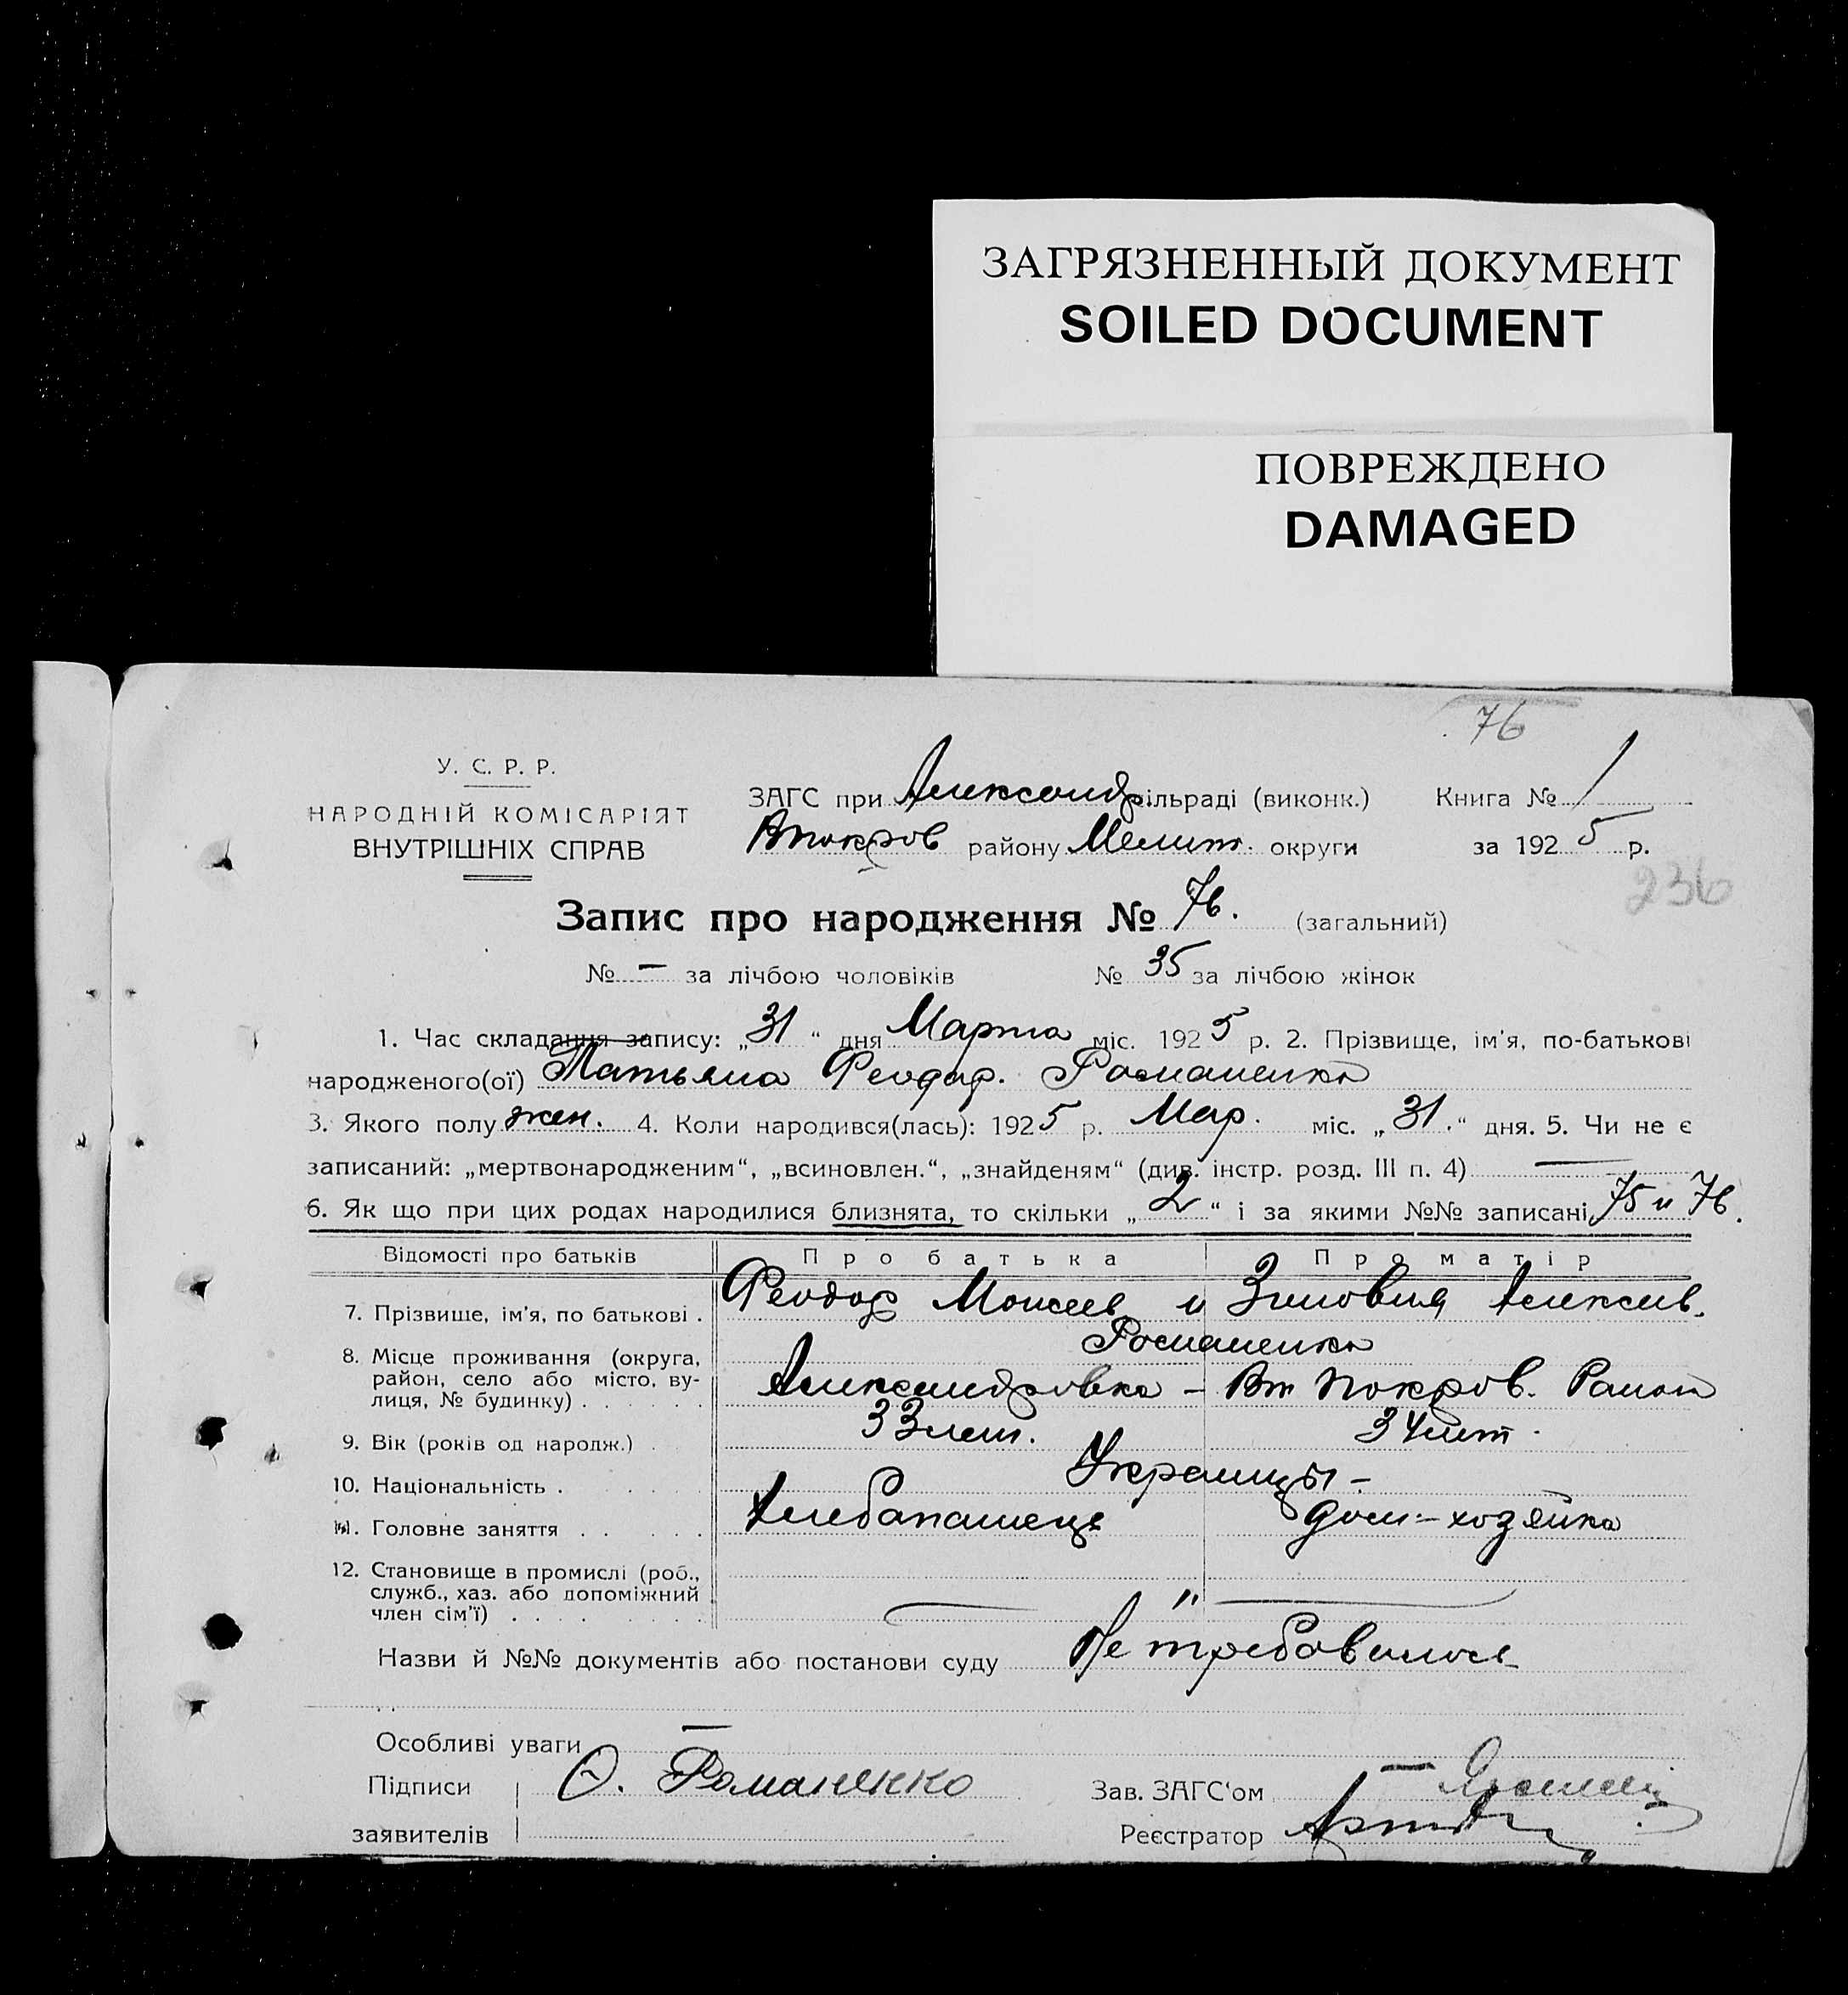 ЗАГРЯЗНЕННЫЙ ДОКУМЕНТ
SOILED DOCUMENT
ПОВРЕЖДЕНО
DAMAGED
76
У. С. Р. Р.
НАРОДНІЙ КОМІСАРІЯТ
ВНУТРІШНІХ СПРАВ
ЗАГС при Александр сільраді (виконк.) Книга № 1
Втокров району Мелит. округи за 1925 р.
236
Запис про народження № 76. (загальний)
№ — за лічбою чоловіків № 35 за лічбою жінок
1. Час складання запису: „31“ дня Марта міс. 1925 р. 2. Прізвище, ім'я, по-батькові
народженого(ої) Татьяна Феодор. Романенко
3. Якого полу жен. 4. Коли народився(лась): 1925 р. Мар. міс. „31.“ дня. 5. Чи не є
записаний: „мертвонародженим“, „всиновлен.“, „знайденям“ (див. інстр. розд. III п. 4) —
6. Як що при цих родах народилися близнята, то скільки „2“ і за якими №№ записані 75 и 76.
Відомості про батьків Про батька Про матір
7. Прізвище, ім'я, по батькові . Феодор Моисеев и Зиновия Алексеев.
Романенко
8. Місце проживання (округа, район, село або місто, ву-
лиця, № будинку) . . . . . . Александровка - Вт Покров. Район
9. Вік (років од народж.) . 33 лет. 34 лет.
10. Національність . . . . . Украинцы -
11. Головне заняття . . . . . Хлебопашець дом.-хозяйка
12. Становище в промислі (роб.,
служб., хаз. або допоміжний
член сім'ї) . . . . . . . — " —
Назви й №№ документів або постанови суду Не требовалось
Особливі уваги —
Підписи Ѳ. Романенко Зав. ЗАГС'ом —
заявителів Реєстратор